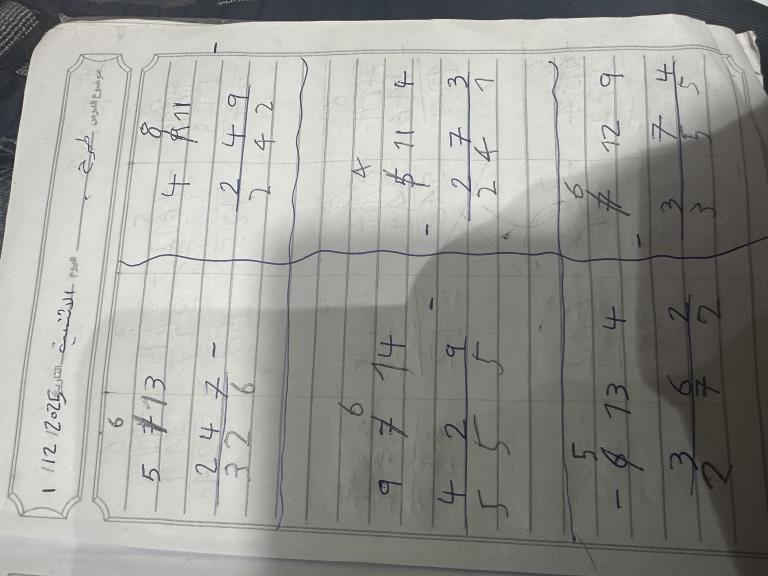 موضوع الدرس طرح اليوم الاثنين التاريخ 1/12/2025
6
5 7 13
2 4 7 -
3 2 6
8
4 9 11
-
2 4 9
2 4 2
6
9 7 14
-
4 2 9
5 5 5
4
5 11 4
-
2 7 3
2 4 1
5
- 6 13 4
3 6 2
2 7 2
6
7 12 9
-
3 7 4
3 5 5